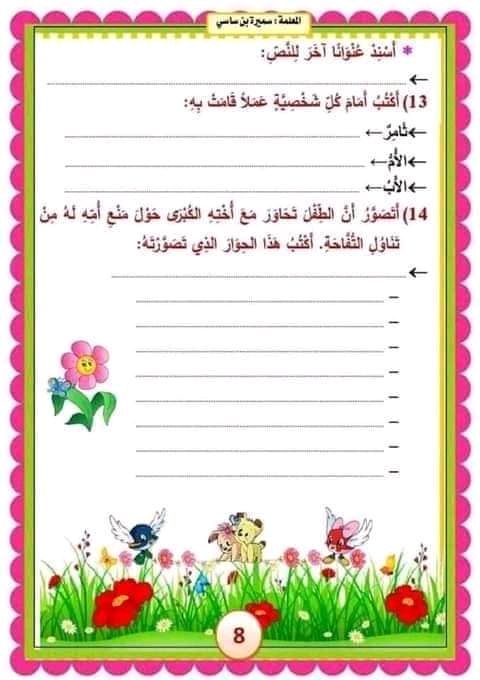 المعلمة : سميرة بن ساسي
* أَسْنِدُ عُنْوَانًا آخَرَ لِلنَّصِّ:
←
13) أَكْتُبُ أَمَامَ كُلِّ شَخْصِيَّةٍ عَمَلاً قَامَتْ بِهِ:
←ثَامِرٌ←
←الأُمُّ←
←الأَبُ←
14) أَتَصَوَّرُ أَنَّ الطِّفْلَ تَحَاوَرَ مَعَ أُخْتِهِ الكُبْرَى حَوْلَ مَنْعِ أُمِّهِ لَهُ مِنْ
تَنَاوُلِ التُّفَّاحَةِ. أَكْتُبُ هَذَا الحِوَارَ الذِي تَصَوَّرْتَهُ:
←
–
–
–
–
–
–
–
–
8